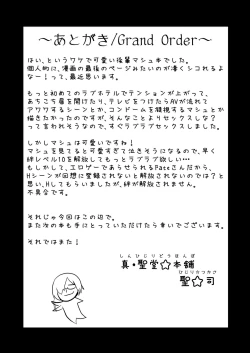 ～あとがき/Grand Order～
はい、というワケで可愛い後輩マシュ本でした。
個人的に、漫画の最後のページみたいのが凄くシコれるよ
なー！って、最近思います。
もっと初めてのラブホテルでテンションが上がって、
あちこち扉を開けたり、テレビをつけたらAVが流れて
アワアワするシーンとか、コンドームを観視するマシュとか
描きたかったのですが、そんなことよりセックスしな？
って言われそうなので、すぐラブラブセックスさせました。
しかしマシュは可愛いですね！
マシュを見てると可愛すぎて泣きそうになるので、早く
絆レベル10を解放してもっとラブラブ欲しい…
もしかして、エロゲーでありせられるFateさんだから、
Hシーンが回想に登録されないと解放されないのでは？と
思い、Hしてもらいましたが、絆が解放されません。
不具合です。
それじゃ今回はこの辺で。
また次の本も手にとっていただけたら幸いでございます。
それではまた！
しんひじりどうほんぽ
真・聖堂☆本舗
ひじりのつかさ
聖☆司